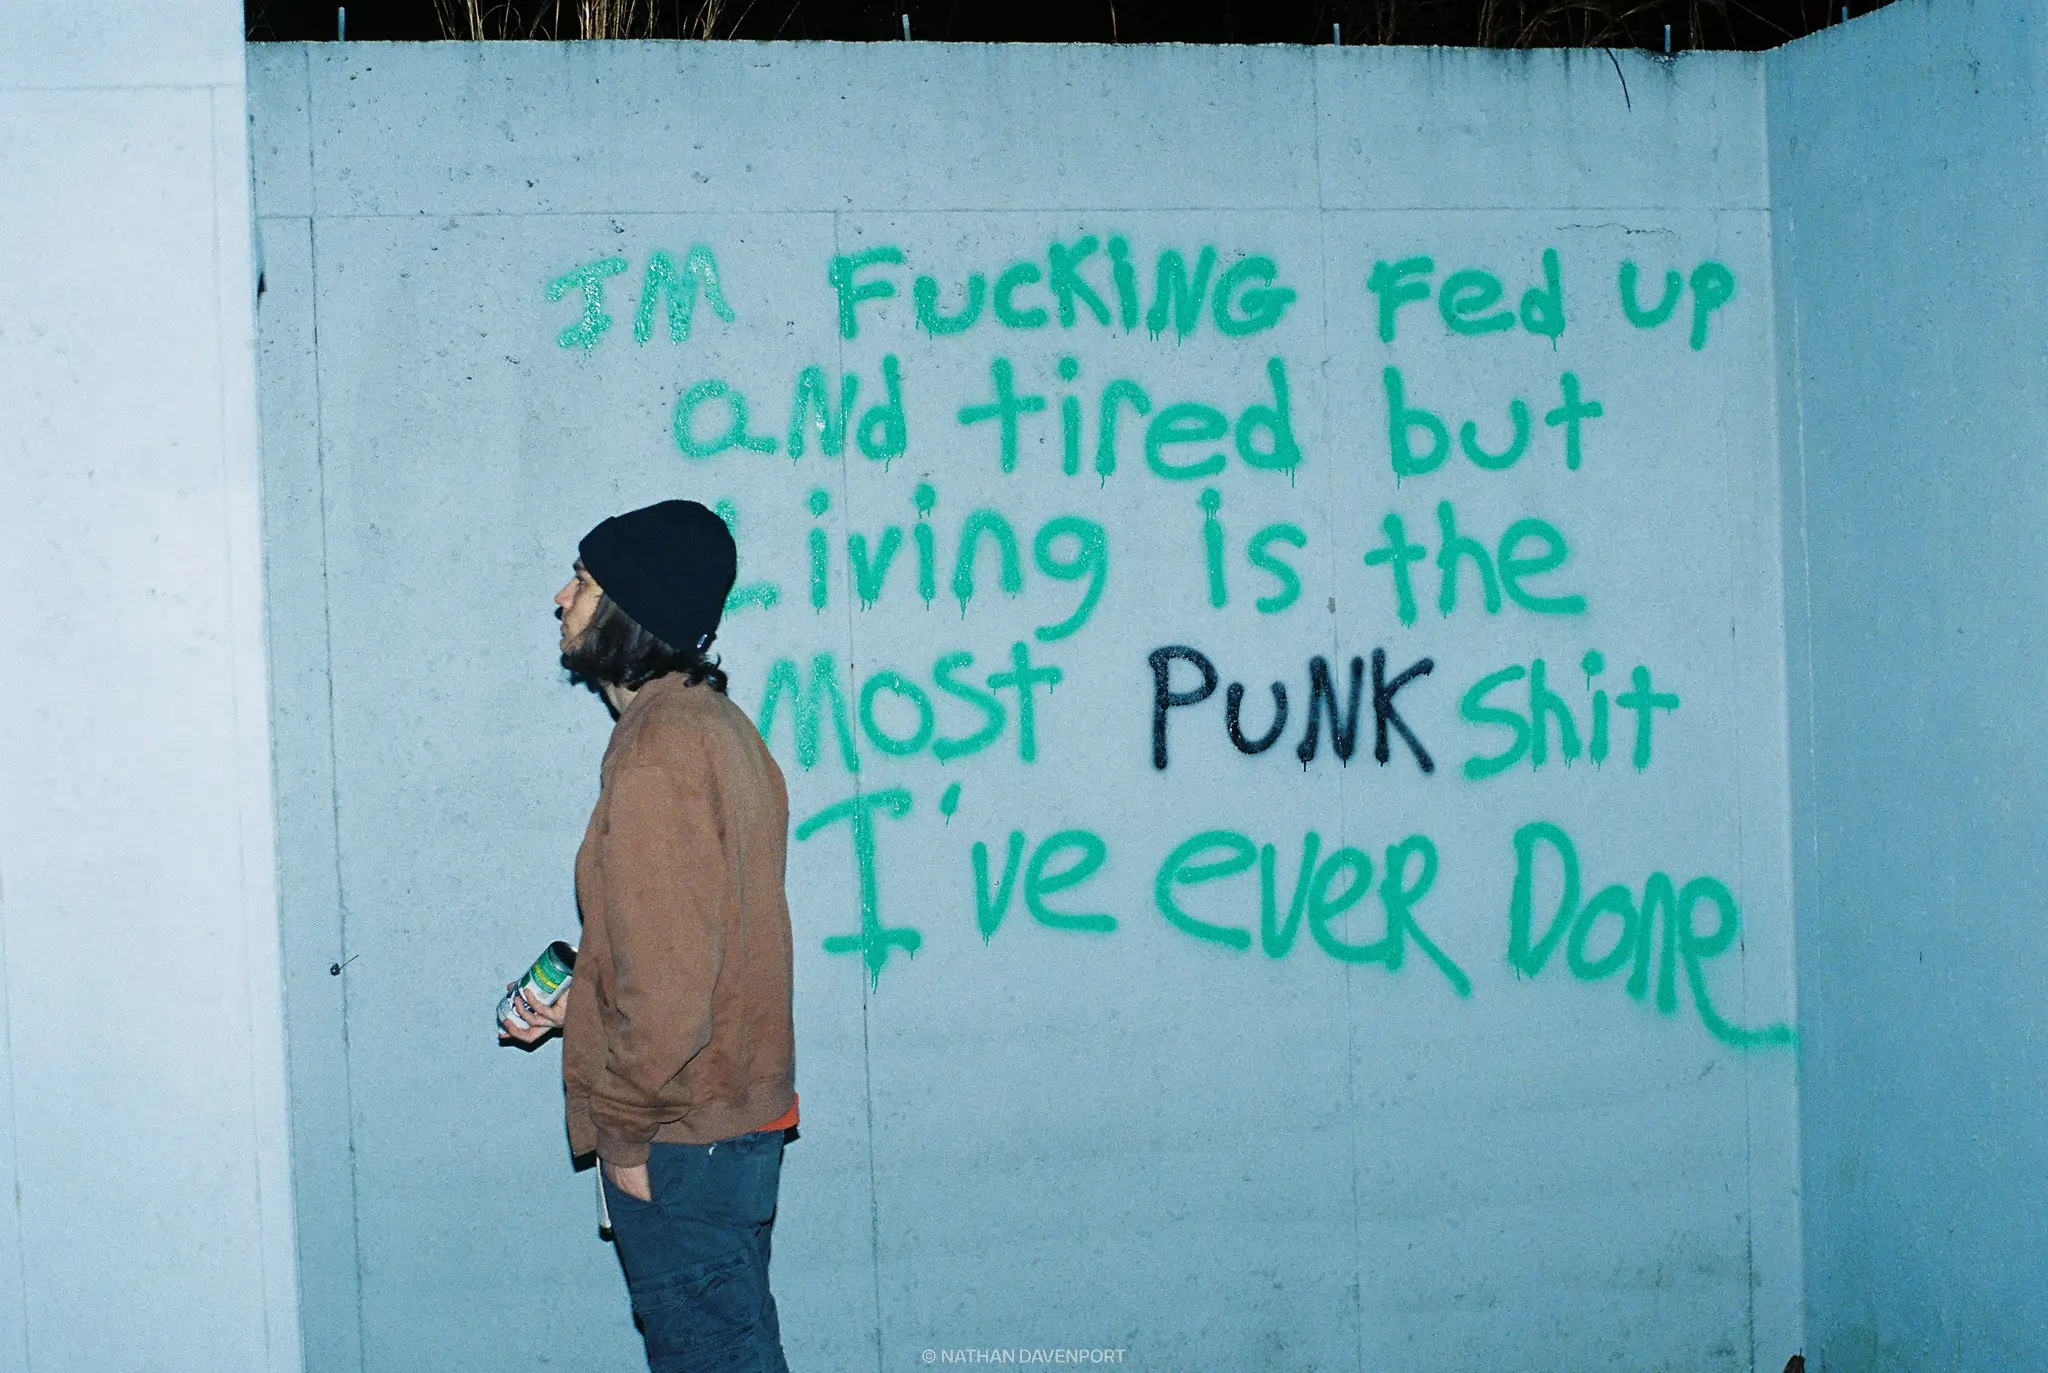 IM FucKiNG Fed up
aNd tired but
Living is the
Most PuNK Shit
I've eveR Done
© NATHAN DAVENPORT